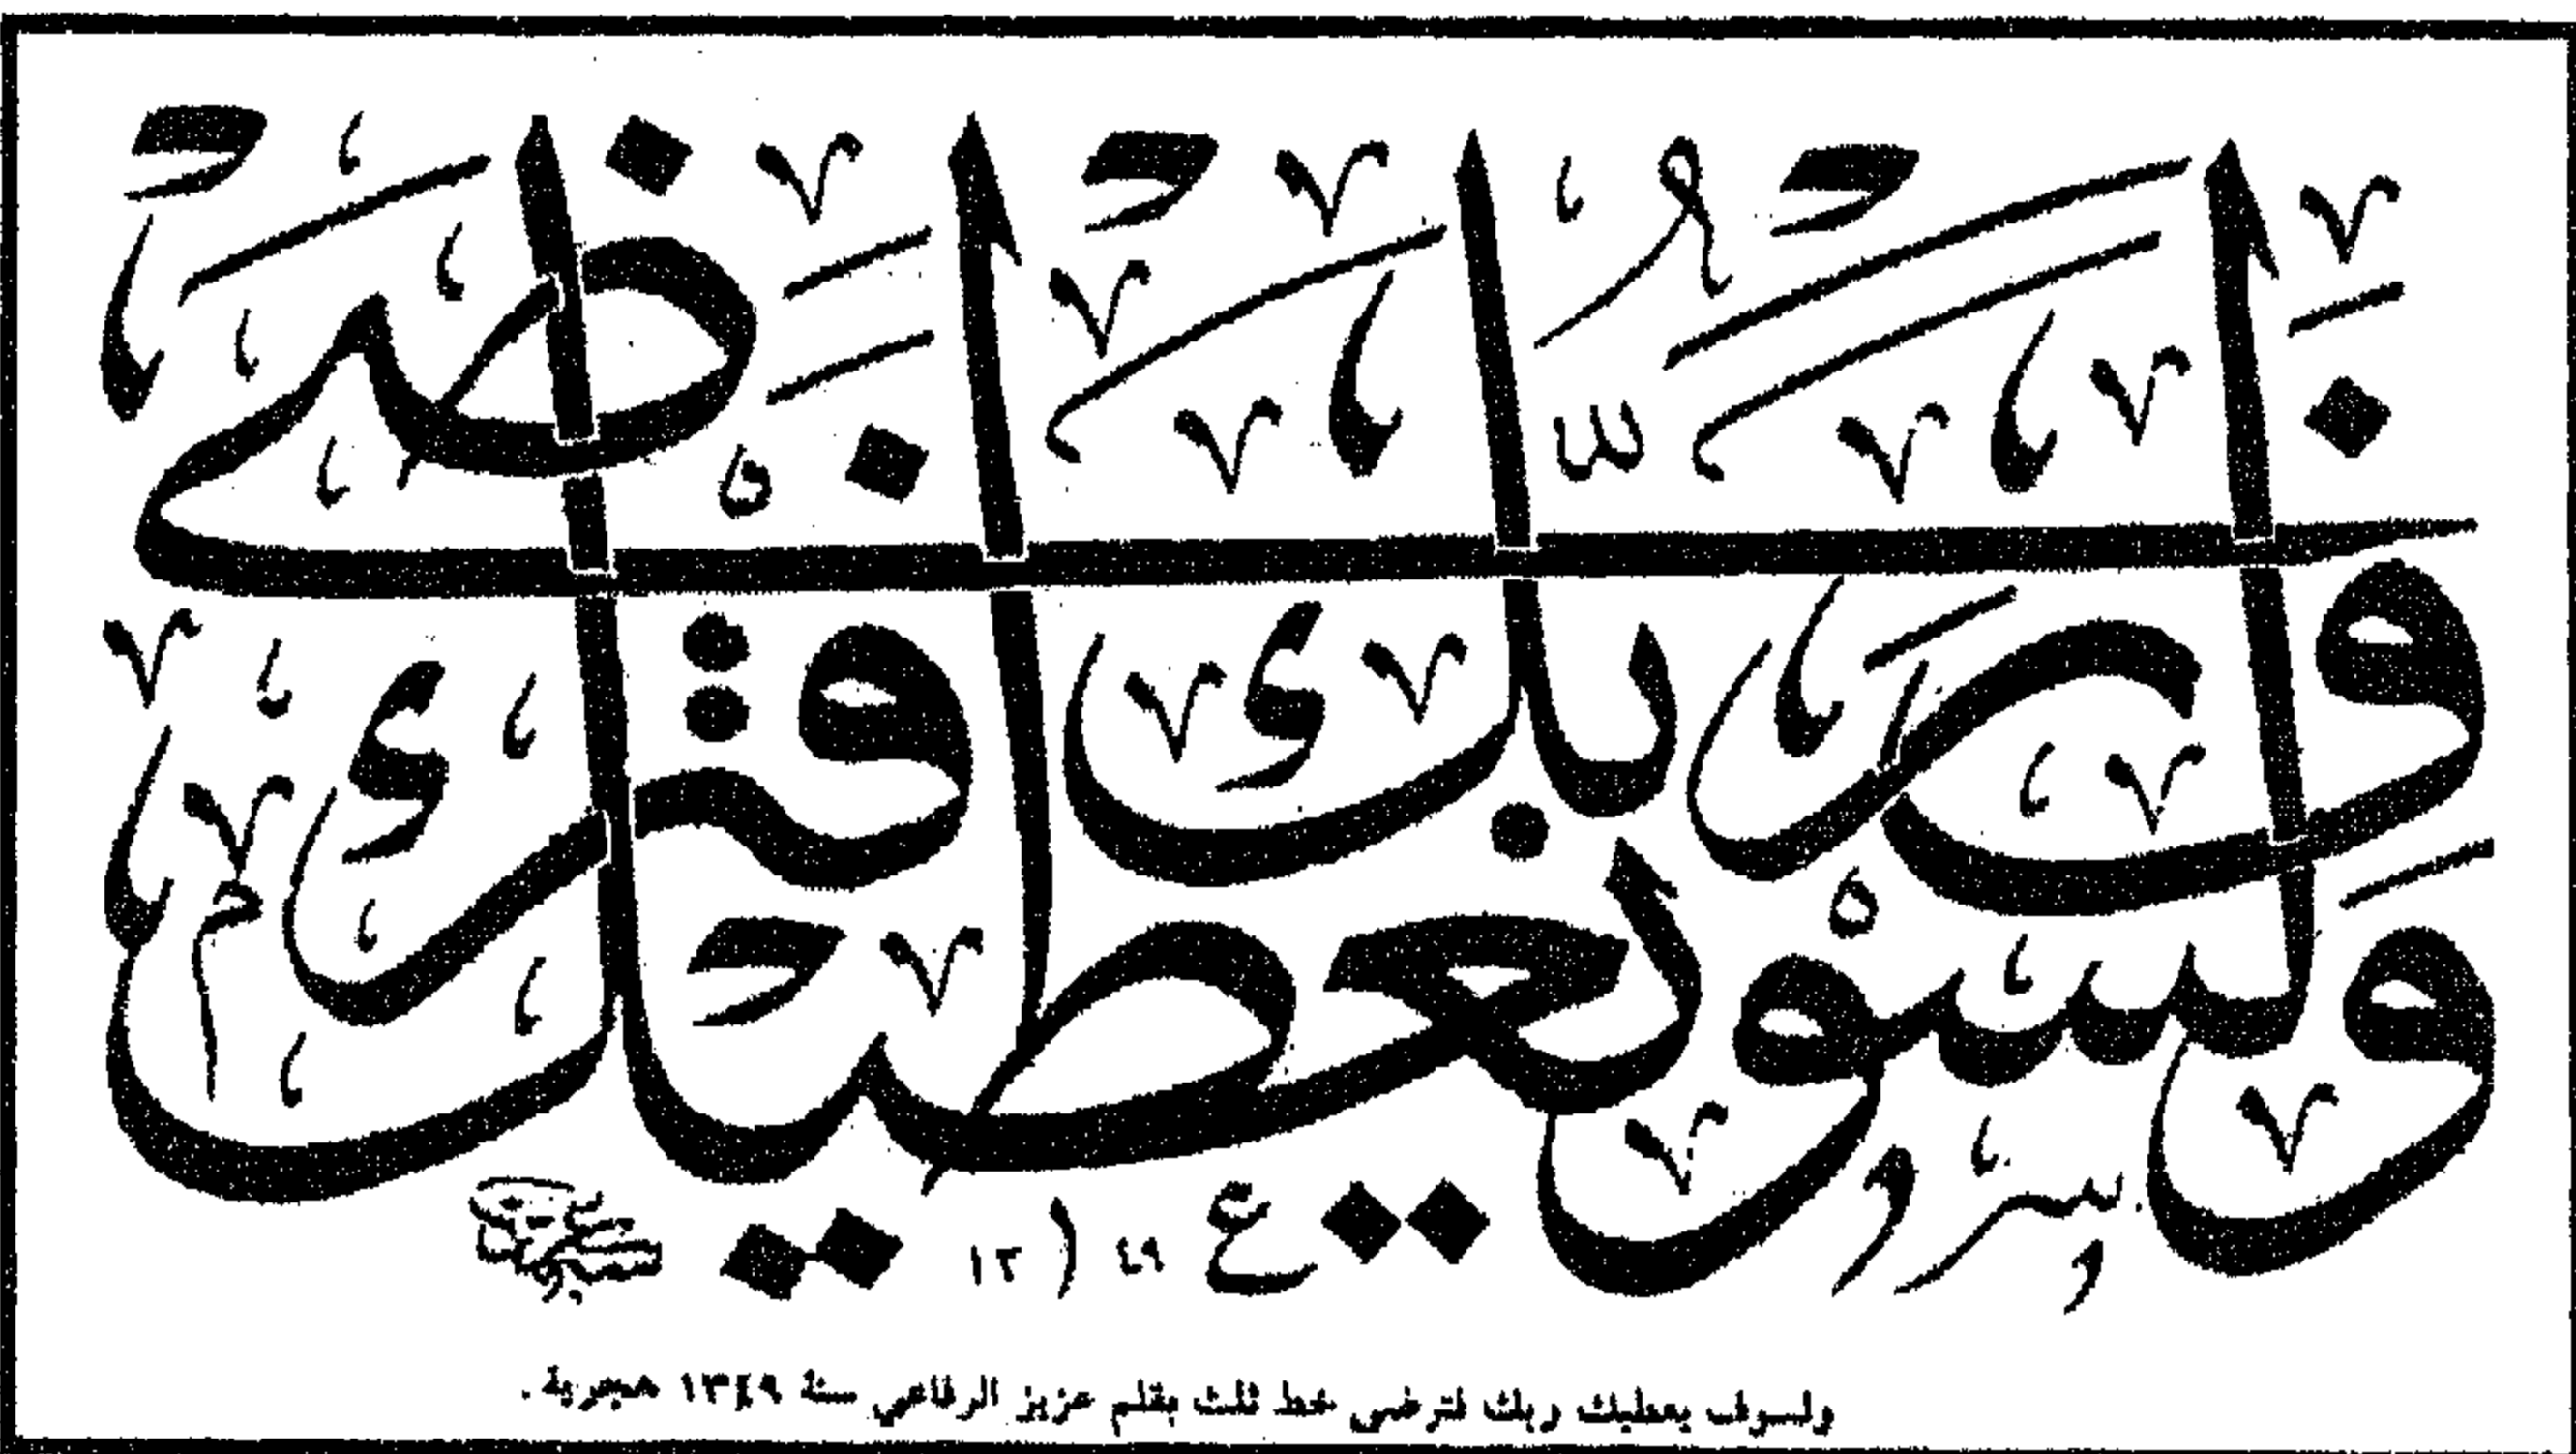 وَلَسَوْفَ يُعْطِيكَ رَبُّكَ فَتَرْضَى
١٣٤٩
ولسوف يعطيك ربك فترضى خط ثلث بقلم عزيز الرفاعي سنة ١٣٤٩ هجرية .